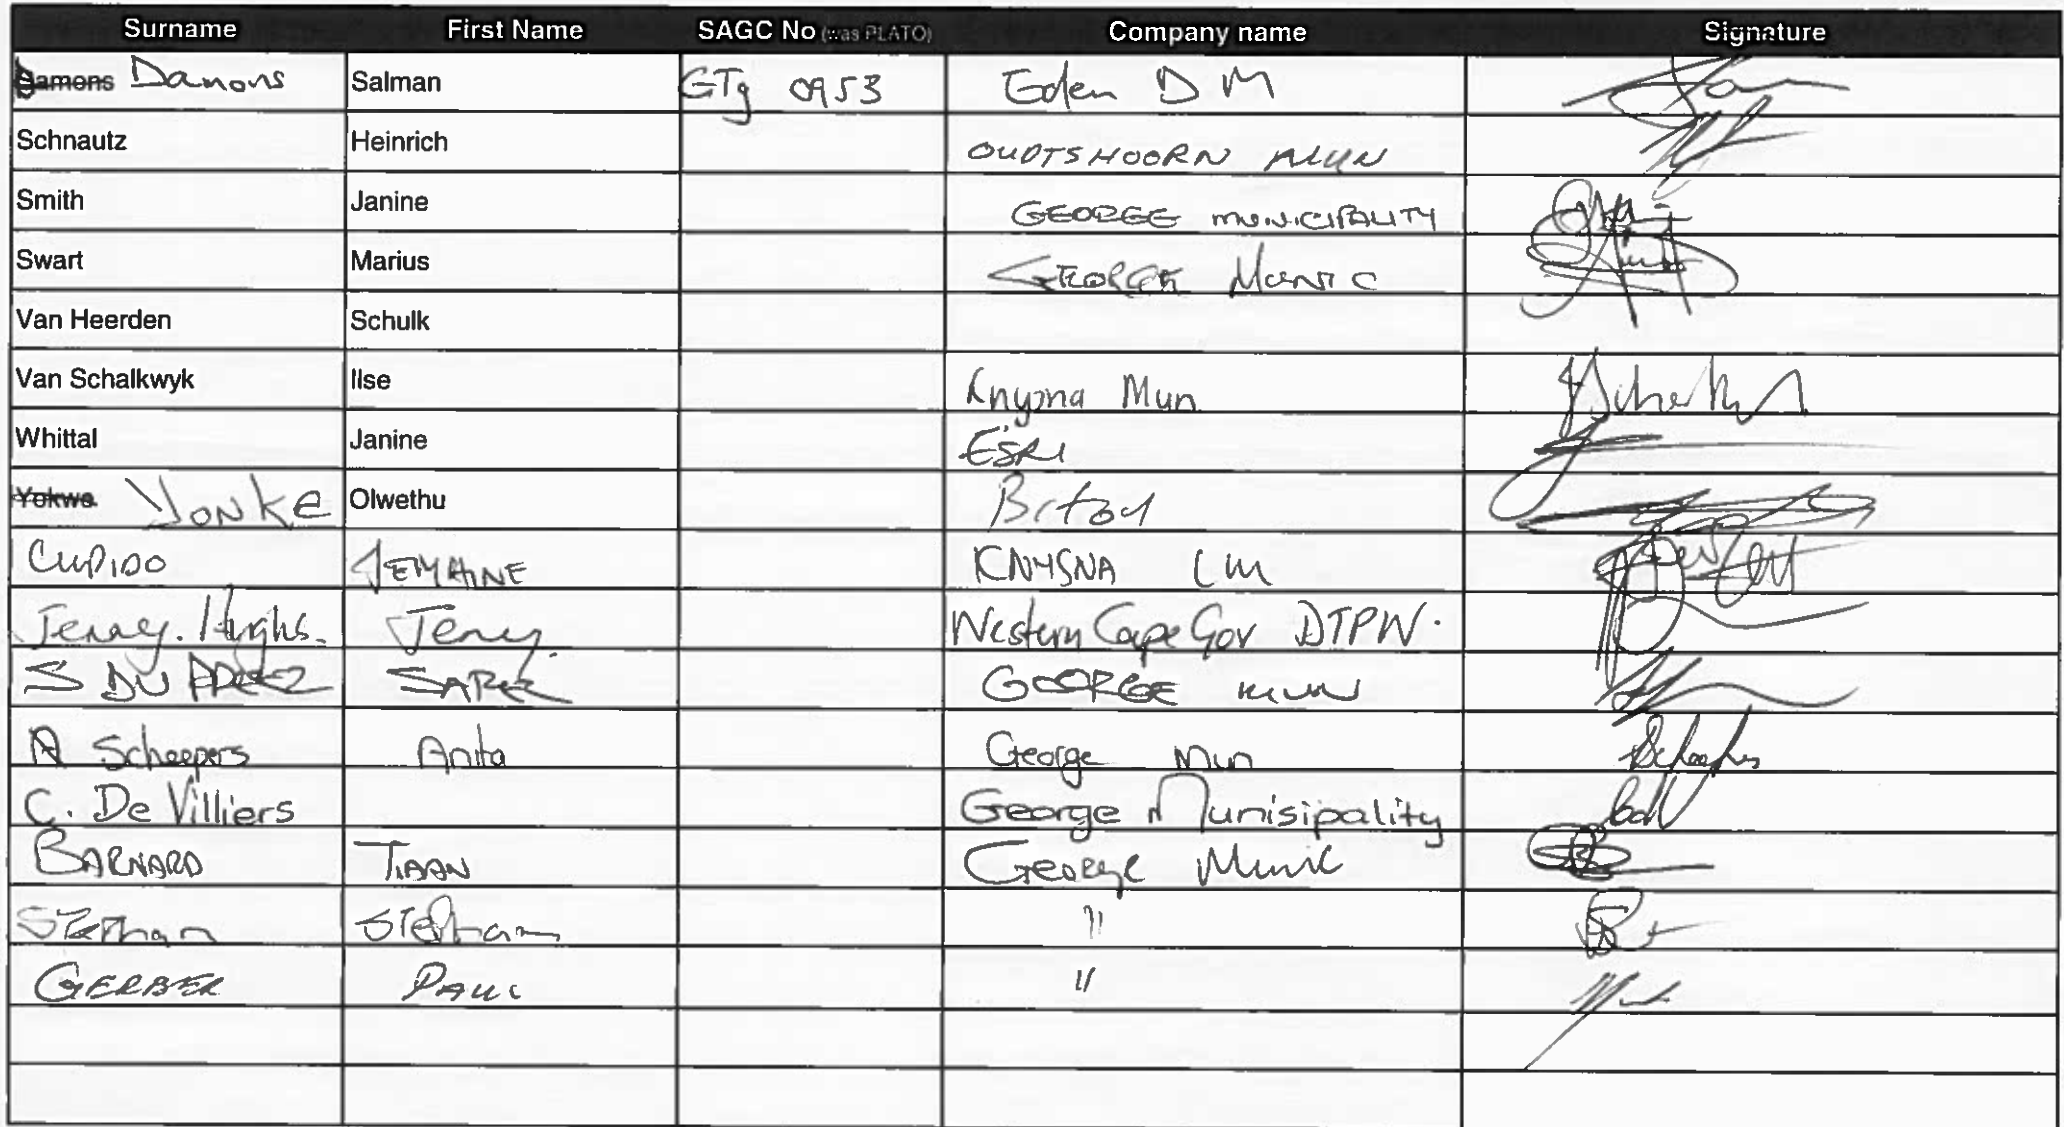 Surname First Name SAGC No (was PLATO) Company name Signature
Damons Salman GTg 0953 Eden DM
Schnautz Heinrich OUDTSHOORN MUN
Smith Janine GEORGE MUNICIPALITY
Swart Marius GEORGE Munic
Van Heerden Schulk
Van Schalkwyk Ilse Knysna Mun
Whittal Janine ESRI
Yokwe YONKE Olwethu Bitou
CUPIDO JEMAINE KNYSNA LM
Western Cape Gov DTPW.
S DU PREEZ SAREL GEORGE MUN
A Scheepers Anita George Mun
C. De Villiers George Munisipality
BARNARD TIAAN George Munic
Stephan "
GERBER PAUL "